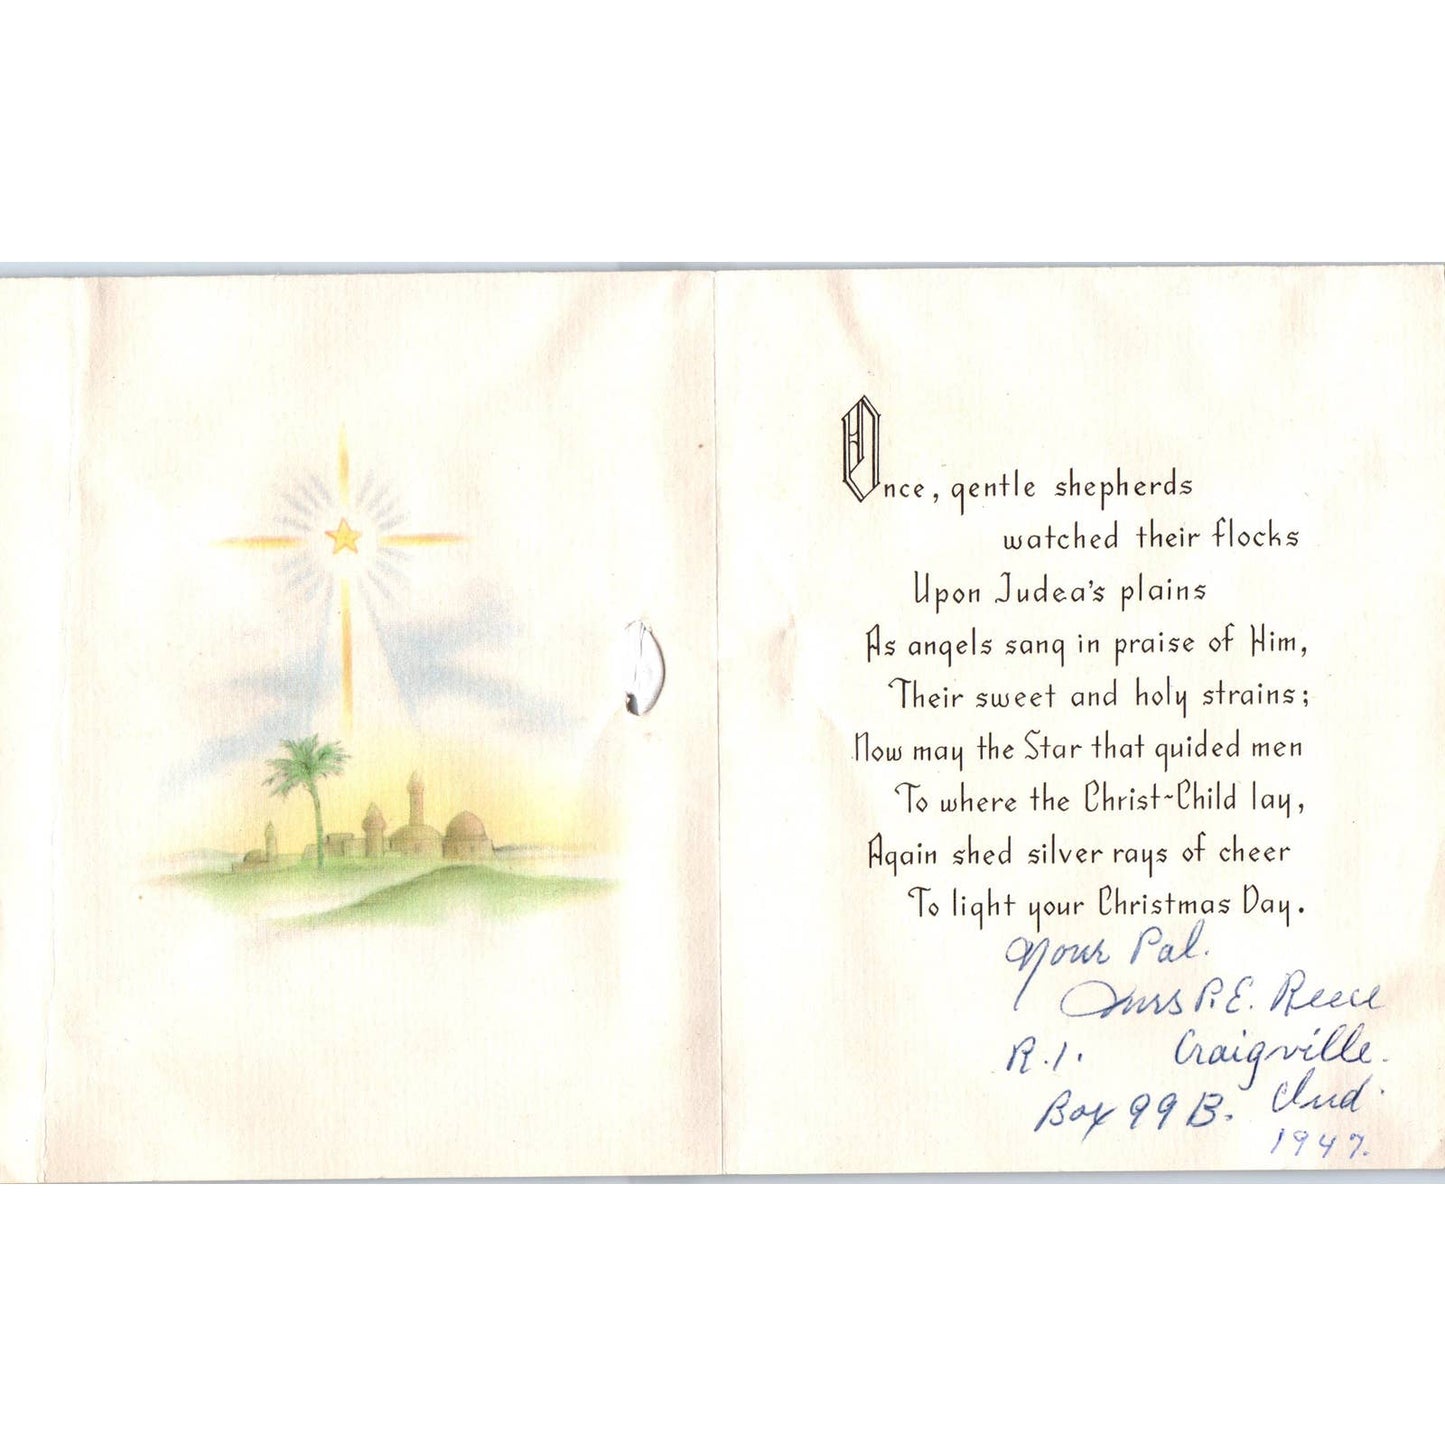 Once, gentle shepherds
watched their flocks
Upon Judea's plains
As angels sang in praise of Him,
Their sweet and holy strains;
Now may the Star that guided men
To where the Christ-Child lay,
Again shed silver rays of cheer
To light your Christmas Day.
Your Pal.
Mrs P.E. Reece
R.1. Craigville.
Box 99 B. Ind.
1947.